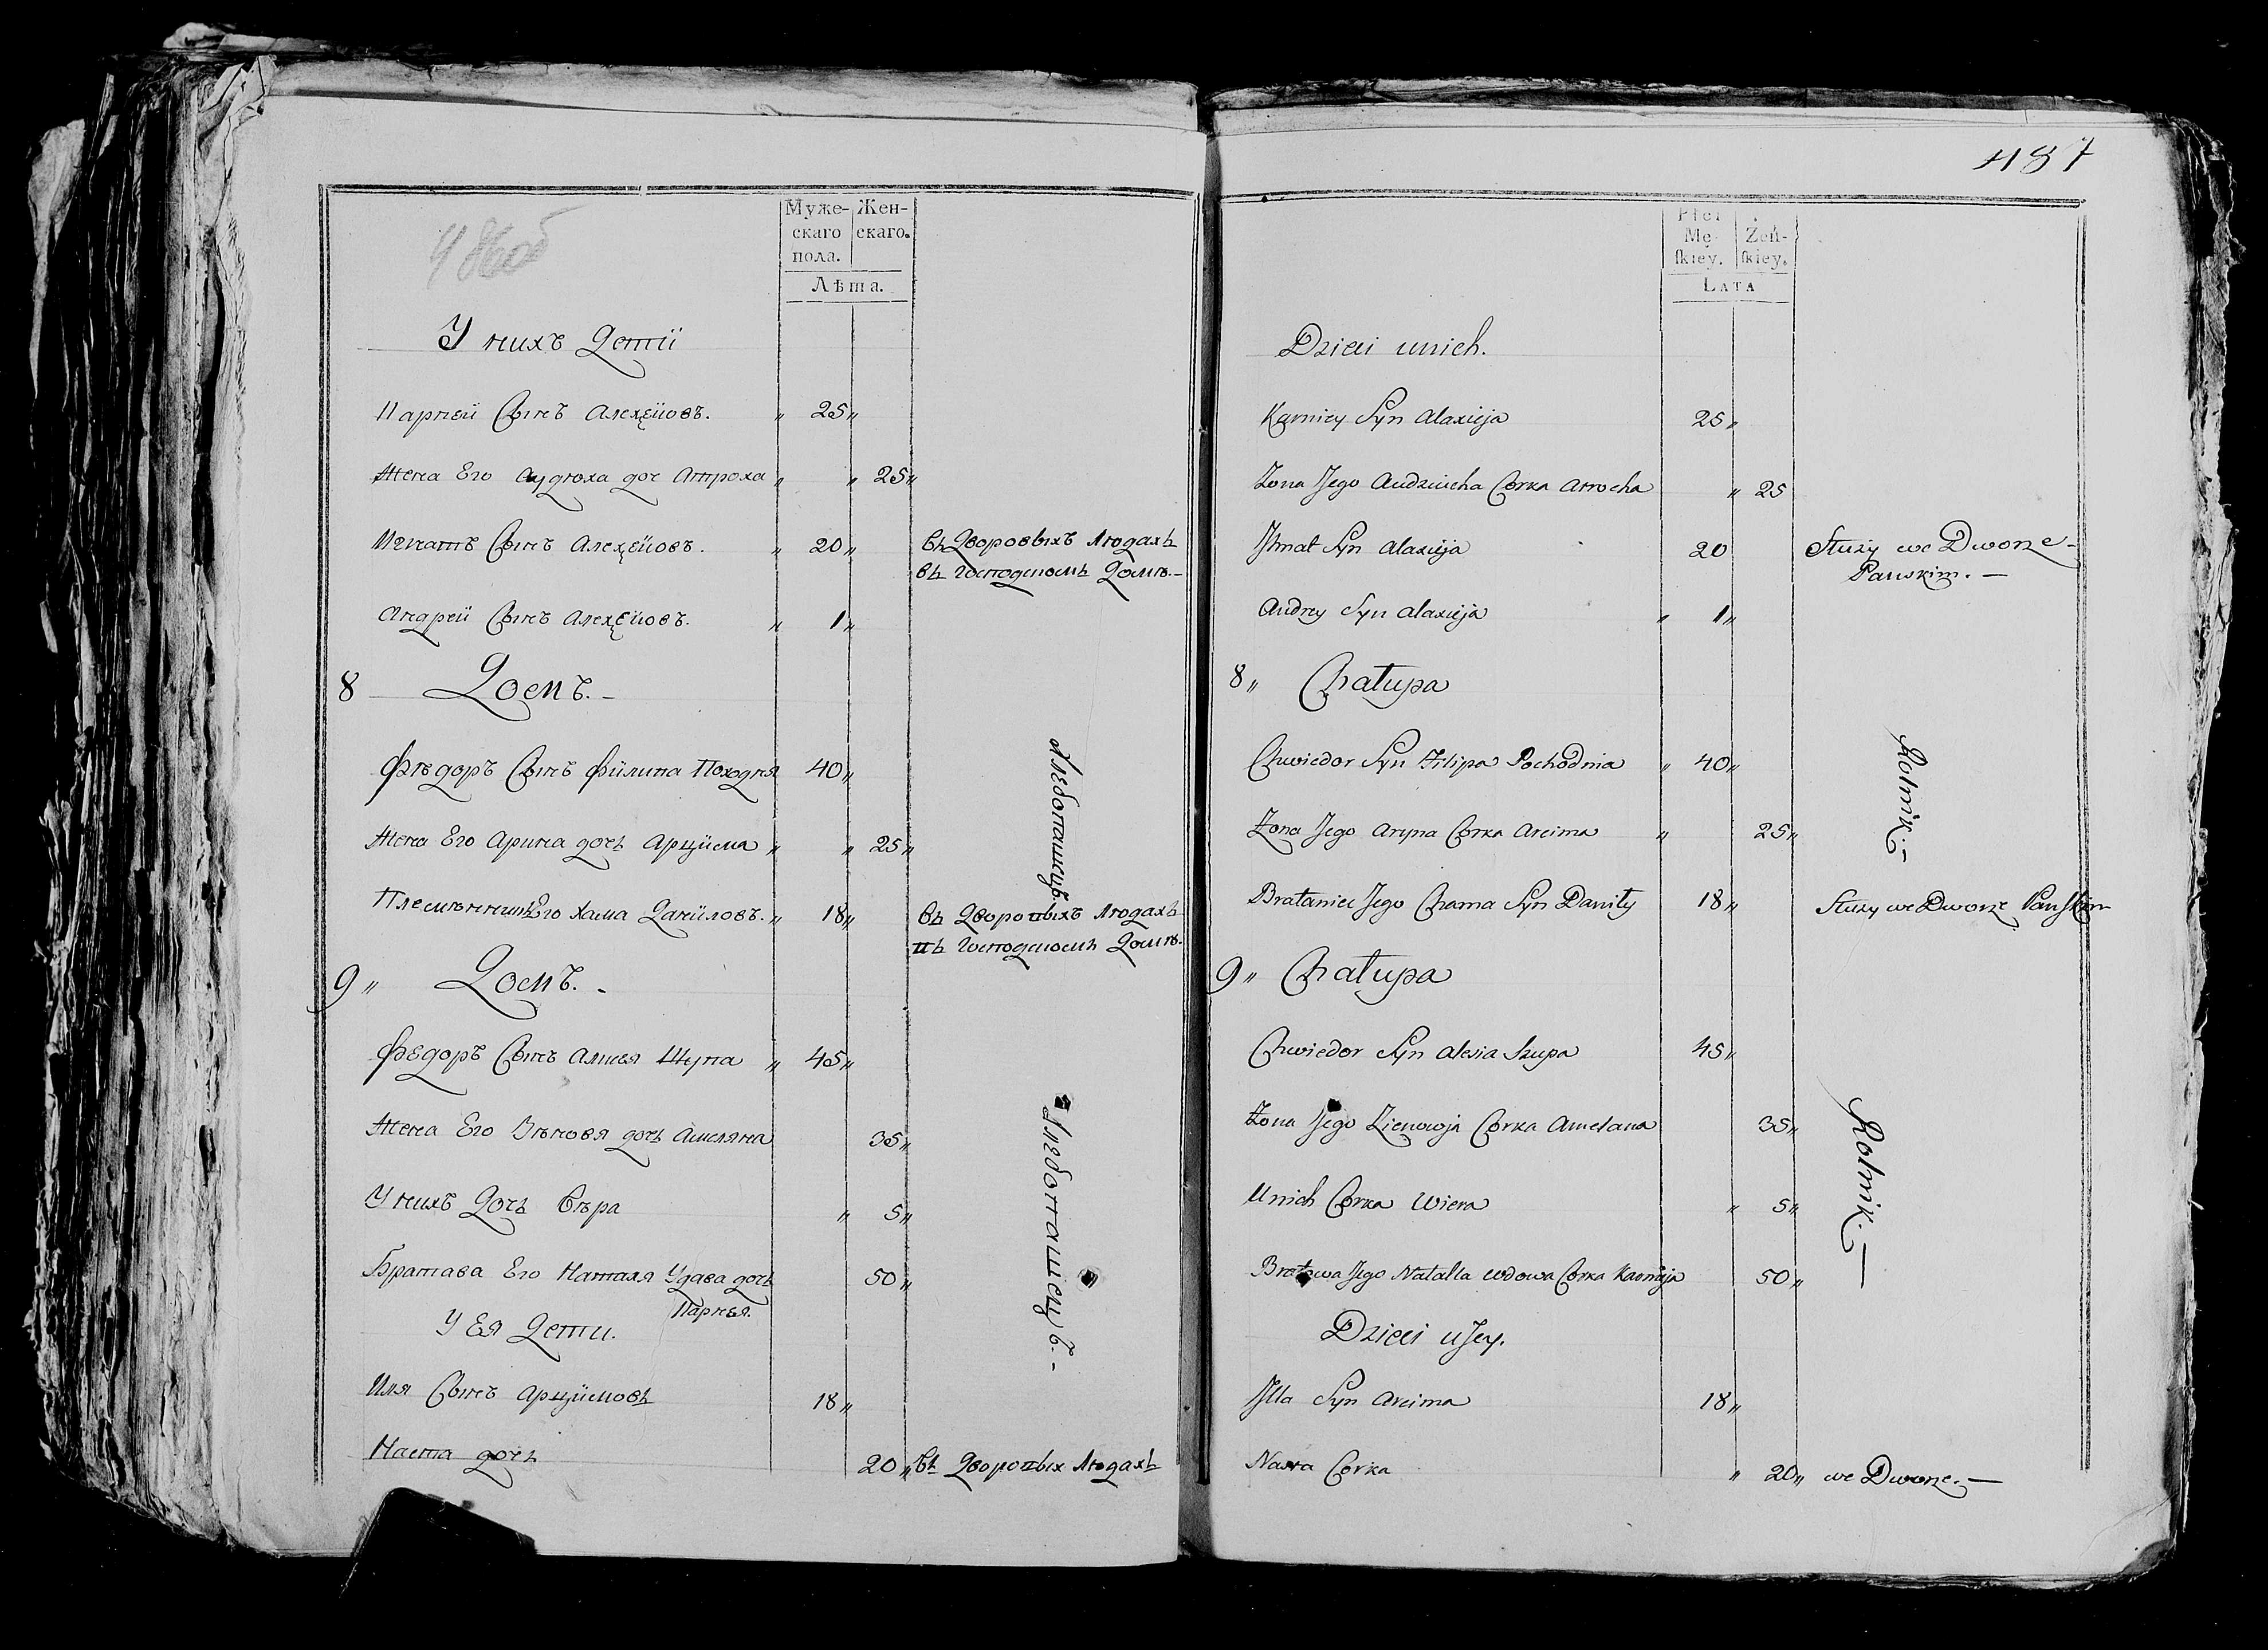 486об
Муже-
скаго
пола.
Жен-
скаго.
Лѣта.
У нихъ Дети
Парней Сынъ Алехѣйовъ. „ 25„
Жена Его Аудюха доч Атроха „ „ 25„
Игнатъ Сынъ Алехѣйовъ. „ 20„ въ Дворовыхъ Людахъ
въ Господскомъ Домѣ.-
Андрей Сынъ Алехѣйовъ. „ 1„
8 Домъ.-
Фѣдоръ Сынъ Филипа Походня 40„
Жена Его Арина дочь Арцима „ „ 25„
Племѣнникъ Его Хама Даниловъ. „ 18„ въ Дворовыхъ Людахъ
въ Господскомъ Домѣ.
Хлебопашцъ.
9„ Домъ. -
Федоръ Сынъ Алисея Щупа „ 45„
Жена Его Зѣновя дочь Амеляна 35„
У нихъ Дочь Вѣра „ 5„
Братава Его Наталя Удава дочь 50„
Парнея.
У Ея Дети.
Иля Сынъ Арцимовъ 18„
Наста дочь 20„ въ Дворовых Людахъ
Хлебопашецъ.-
487
Płci
Mę-
ſkiey.
Żeń-
ſkiey.
Lata
Dzieci unich.
Karniey Syn Alaxieja 25„
Zona Jego Audziucha Corka Atrocha „ 25
Jhnat Syn Alaxieja 20 Służy we Dworze
Panskim. —
Andrey Syn Alaxieja „ 1„
8„ Chałupa
Chwiedor Syn Filipa Pochodnia „ 40„
Zona Jego Aryna Corka Arcima „ 25„
Brataniec Jego Chama Syn Daniły 18„ Służy we Dworze Panſkim
Rolnik.-
9„ Chałupa
Chwiedor Syn Alesia Szupa 45„
Zona Jego Zienowja Corka Amelana 35„
Unich Corka Wiera „ 5„
Bratowa Jego Natalla Wdowa Corka Karnieja 50„
Dzieci uJey.
Jlla Syn Arcima 18„
Nasta Corka „ 20„ we Dworze.—
Rolnik.—